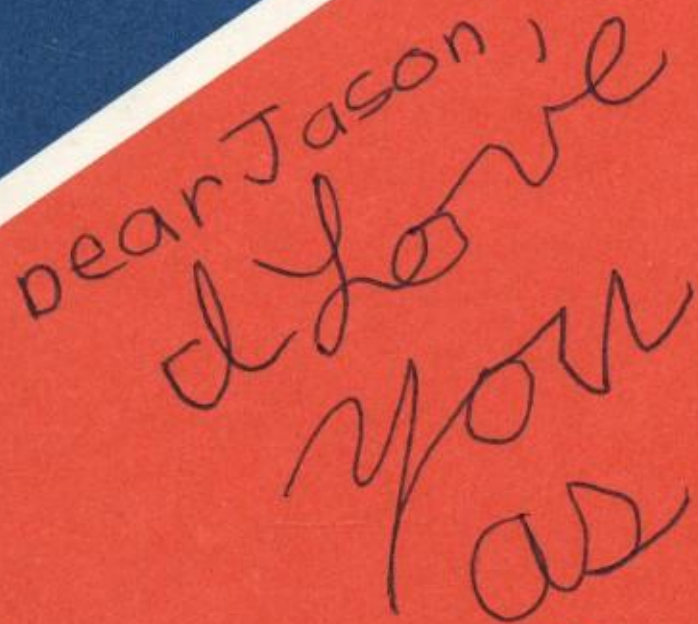 Dear Jason,
I Love
you
as